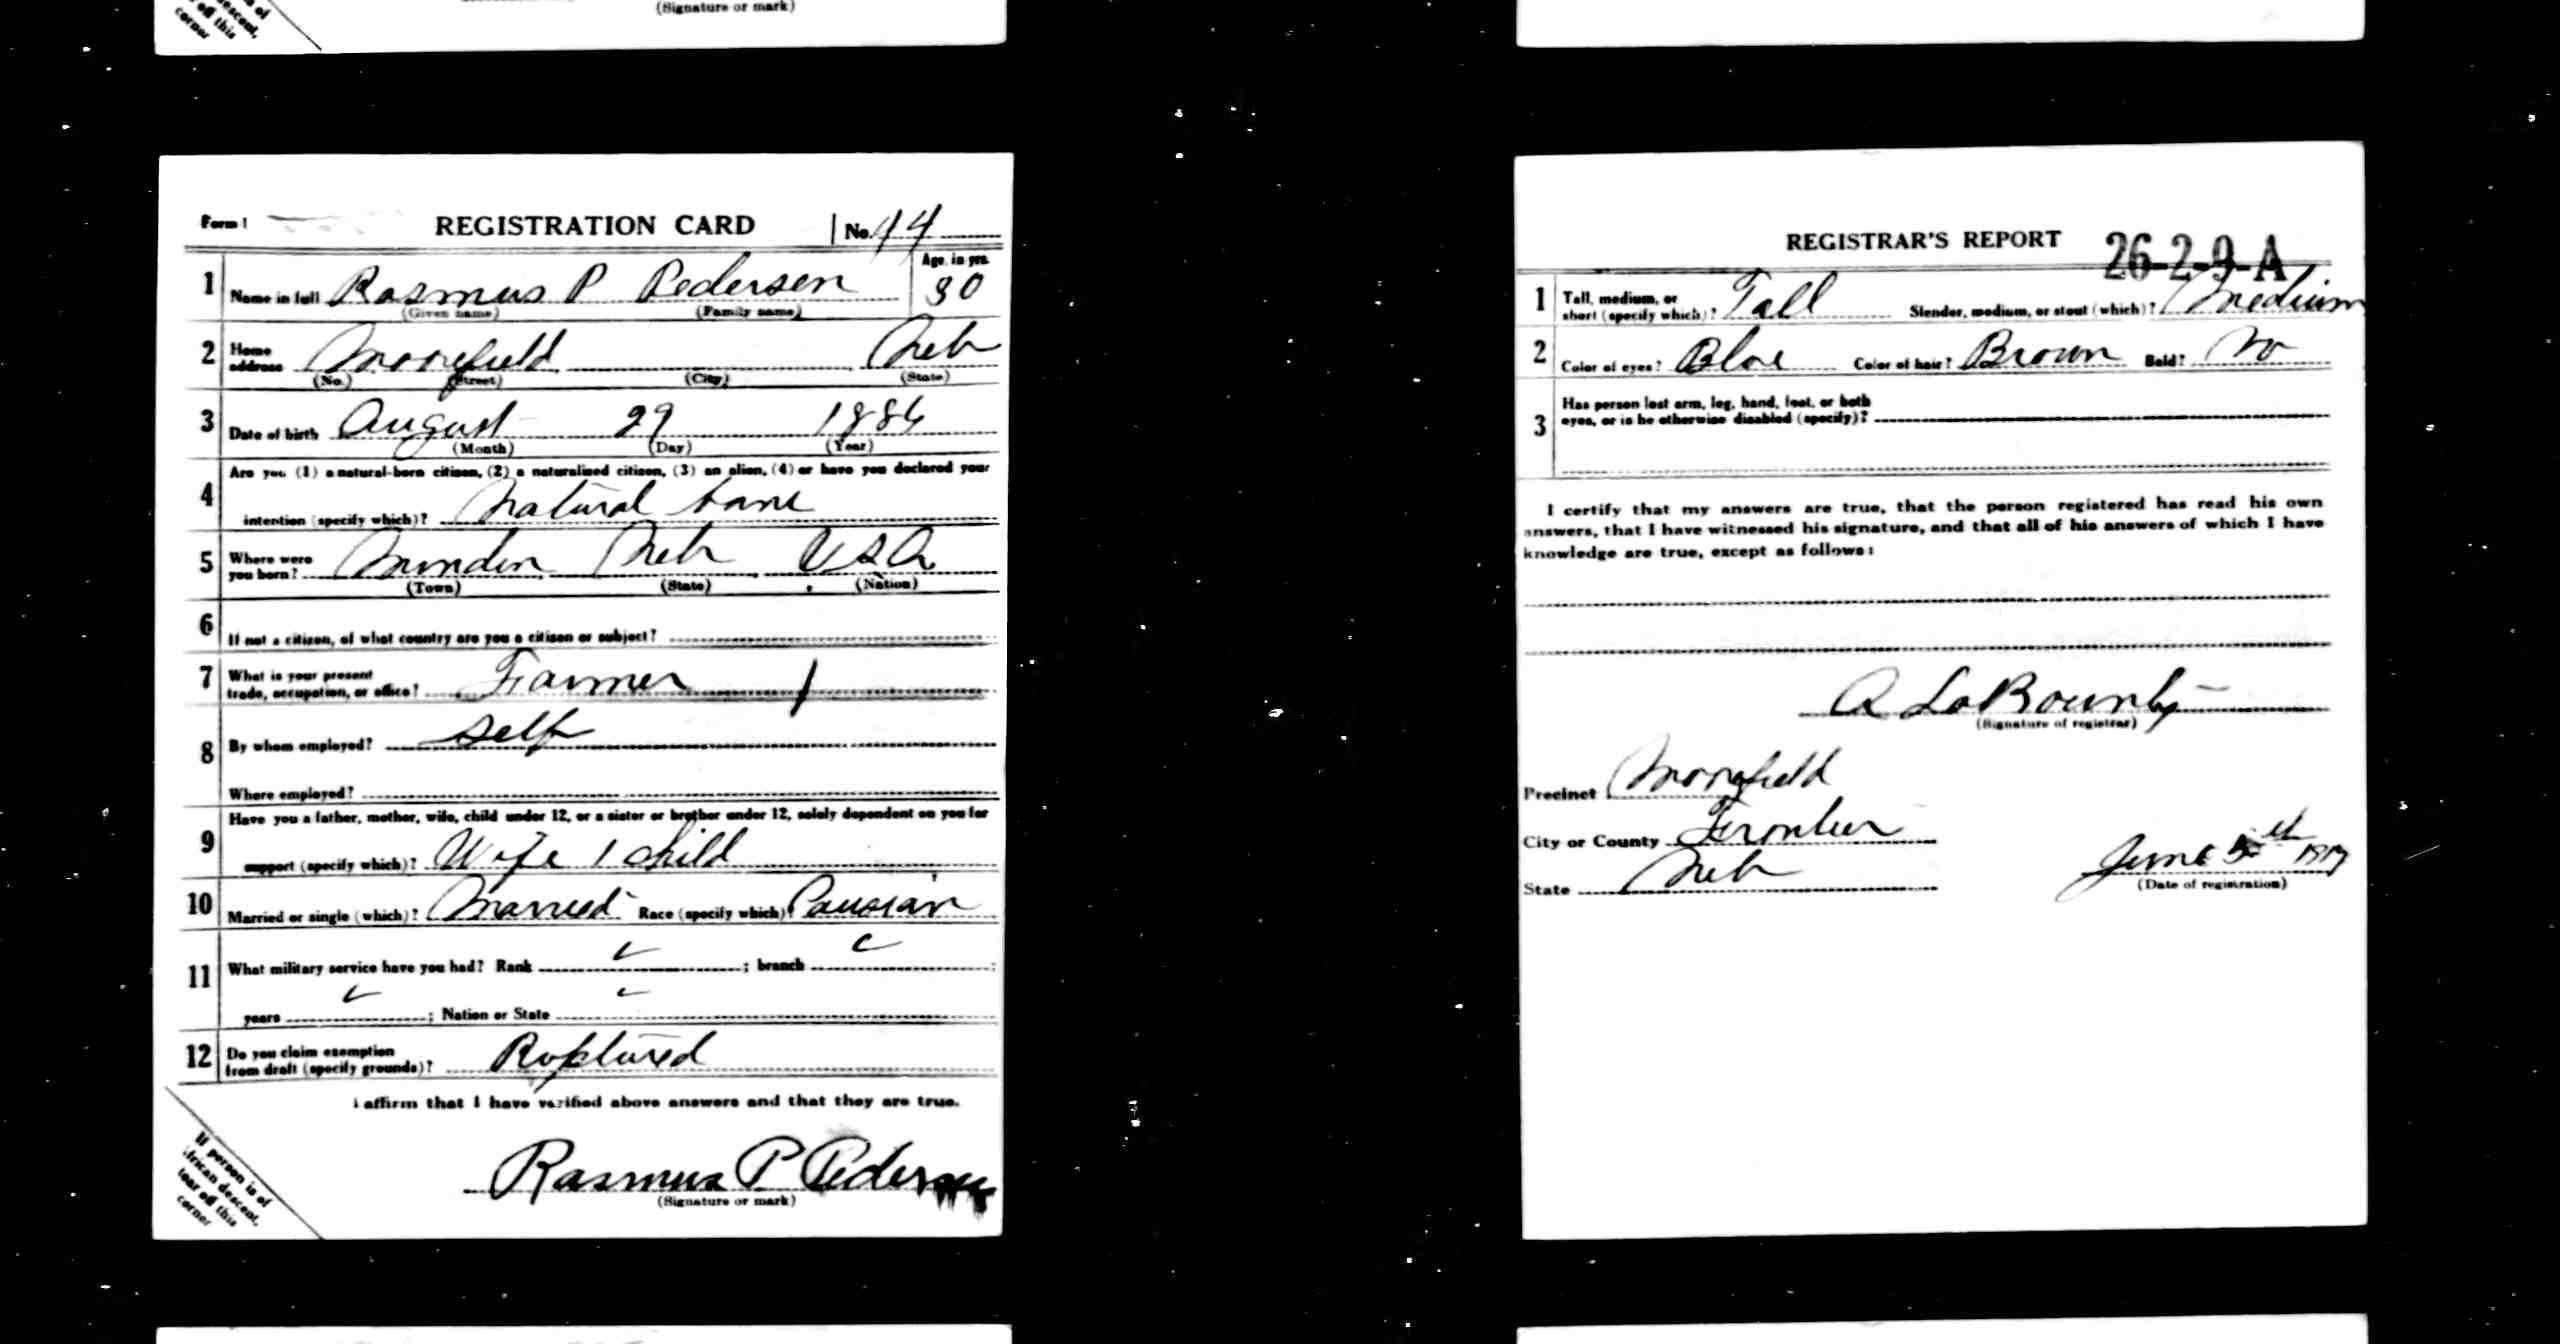 (Signature or mark)
of
escent,
off this
corner
Form 1 REGISTRATION CARD No. 44
1 Name in full Rasmus P Pedersen Age, in yrs. 30
(Given name) (Family name)
2 Home address Moorefield Neb
(No.) (Street) (City) (State)
3 Date of birth August 29 1886
(Month) (Day) (Year)
Are you (1) a natural-born citizen, (2) a naturalized citizen, (3) an alien, (4) or have you declared your
4 intention (specify which)? Natural borne
5 Where were you born? Minden Neb USA
(Town) (State) (Nation)
6 If not a citizen, of what country are you a citizen or subject?
7 What is your present
trade, occupation, or office? Farmer
8 By whom employed? self
Where employed?
Have you a father, mother, wife, child under 12, or a sister or brother under 12, solely dependent on you for
9 support (specify which)? Wife 1 child
10 Married or single (which)? Married Race (specify which)? Causian
11 What military service have you had? Rank ; branch ;
years ; Nation or State
12 Do you claim exemption
from draft (specify grounds)? Ruptured
I affirm that I have verified above answers and that they are true.
Rasmus P Pedersen
(Signature or mark)
If person is of
African descent,
tear off this
corner
REGISTRAR'S REPORT 26-2-9-A
1 Tall, medium, or
short (specify which)? Tall Slender, medium, or stout (which)? Medium
2 Color of eyes? Blue Color of hair? Brown Bald? No
3 Has person lost arm, leg, hand, foot, or both
eyes, or is he otherwise disabled (specify)?
I certify that my answers are true, that the person registered has read his own
answers, that I have witnessed his signature, and that all of his answers of which I have
knowledge are true, except as follows:
A LaBounty
(Signature of registrar)
Precinct Moorefield
City or County Frontier
State Neb
June 5th 1917
(Date of registration)